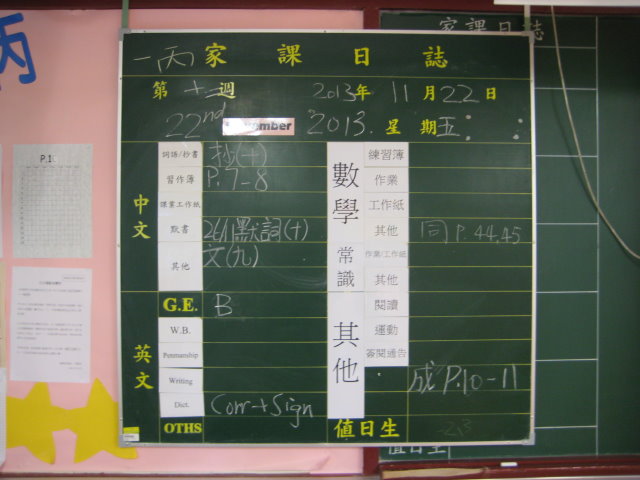 一丙 家課日誌
第 十二 週 2013年 11月22日
22nd mber 2013. 星期五
中文
詞語/抄書 抄(十)
習作簿 P.7-8
課業工作紙
默書 26/11默詞(十)
其他 文(九)
英文
G.E. B
W.B.
Penmanship
Writing
Dict. Corr + Sign
OTHS
數學
練習簿
作業
工作紙
其他 同 P.44,45
常識
作業/工作紙
其他
其他
閱讀
運動
簽閱通告
成 P.10-11
值日生
家課日誌
值日生
P.1